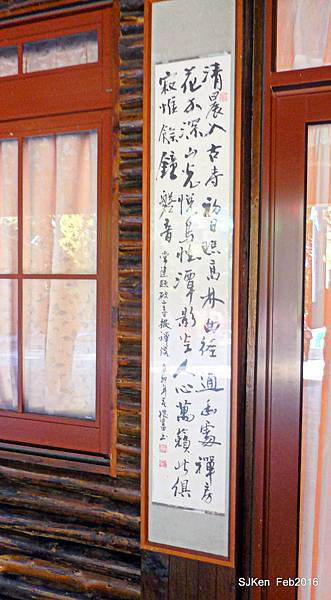 清晨入古寺初日照高林曲徑通幽處禪房
花木深山光悅鳥性潭影空人心萬籟此俱
寂惟餘鐘磬音 常建題破山寺後禪院
SJKen Feb2016